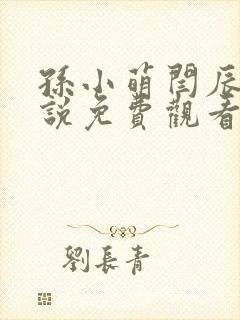 孫小萌閆辰
說免費觀看
劉長青